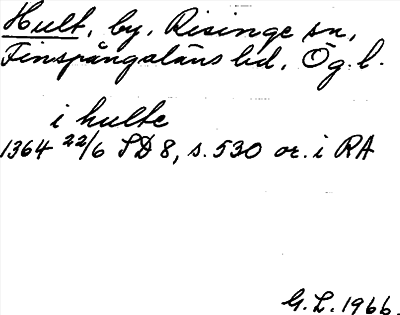 Hult, by, Risinge sn,
Finspångaläns hd, Ög. l.
i hulte
1364 22/6 SD 8, s. 530 or. i RA
G. L. 1966.